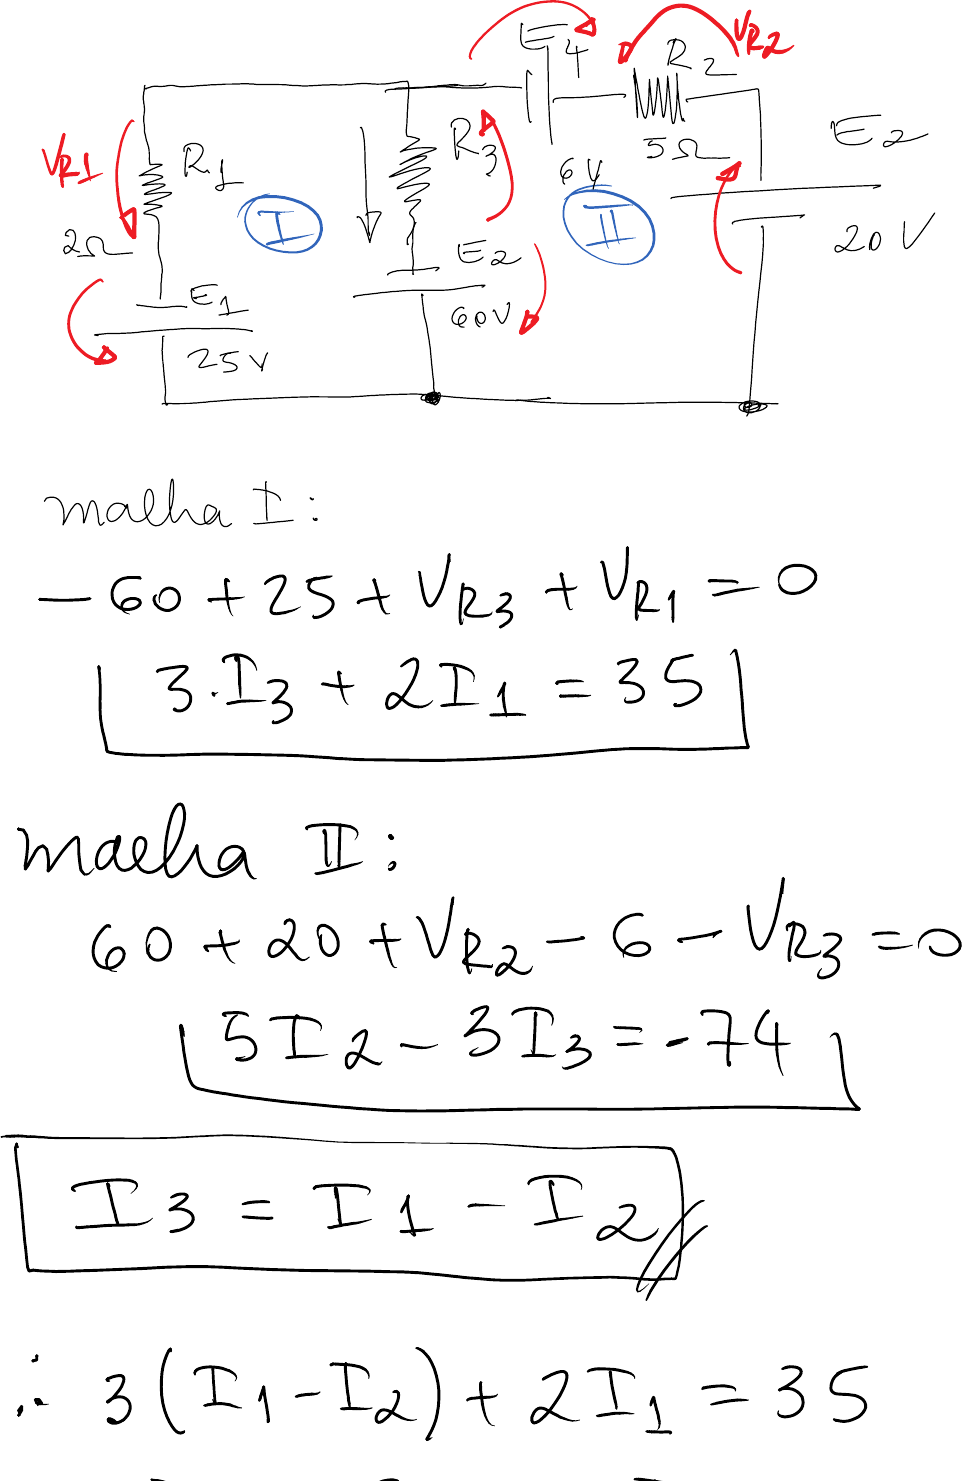 E4
VR2
R2
VR1
R1
R3
5Ω
E2
6V
I
II
2Ω
E2
20V
E1
60V
25V
malha I:
-60+25+VR3+VR1=0
3.I3+2I1=35
malha II:
60+20+VR2-6-VR3=0
5I2-3I3=-74
I3=I1-I2
∴ 3(I1-I2)+2I1=35